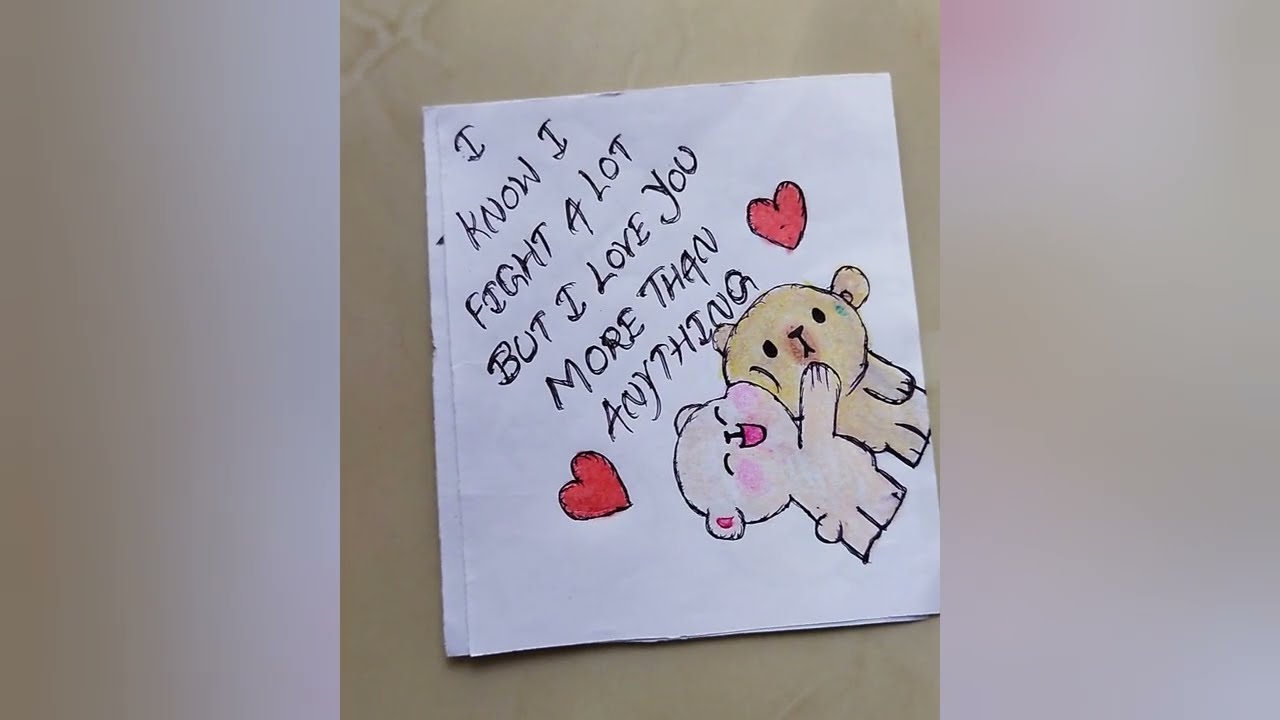 I
KNOW I
FIGHT A LOT
BUT I LOVE YOU
MORE THAN
ANYTHING